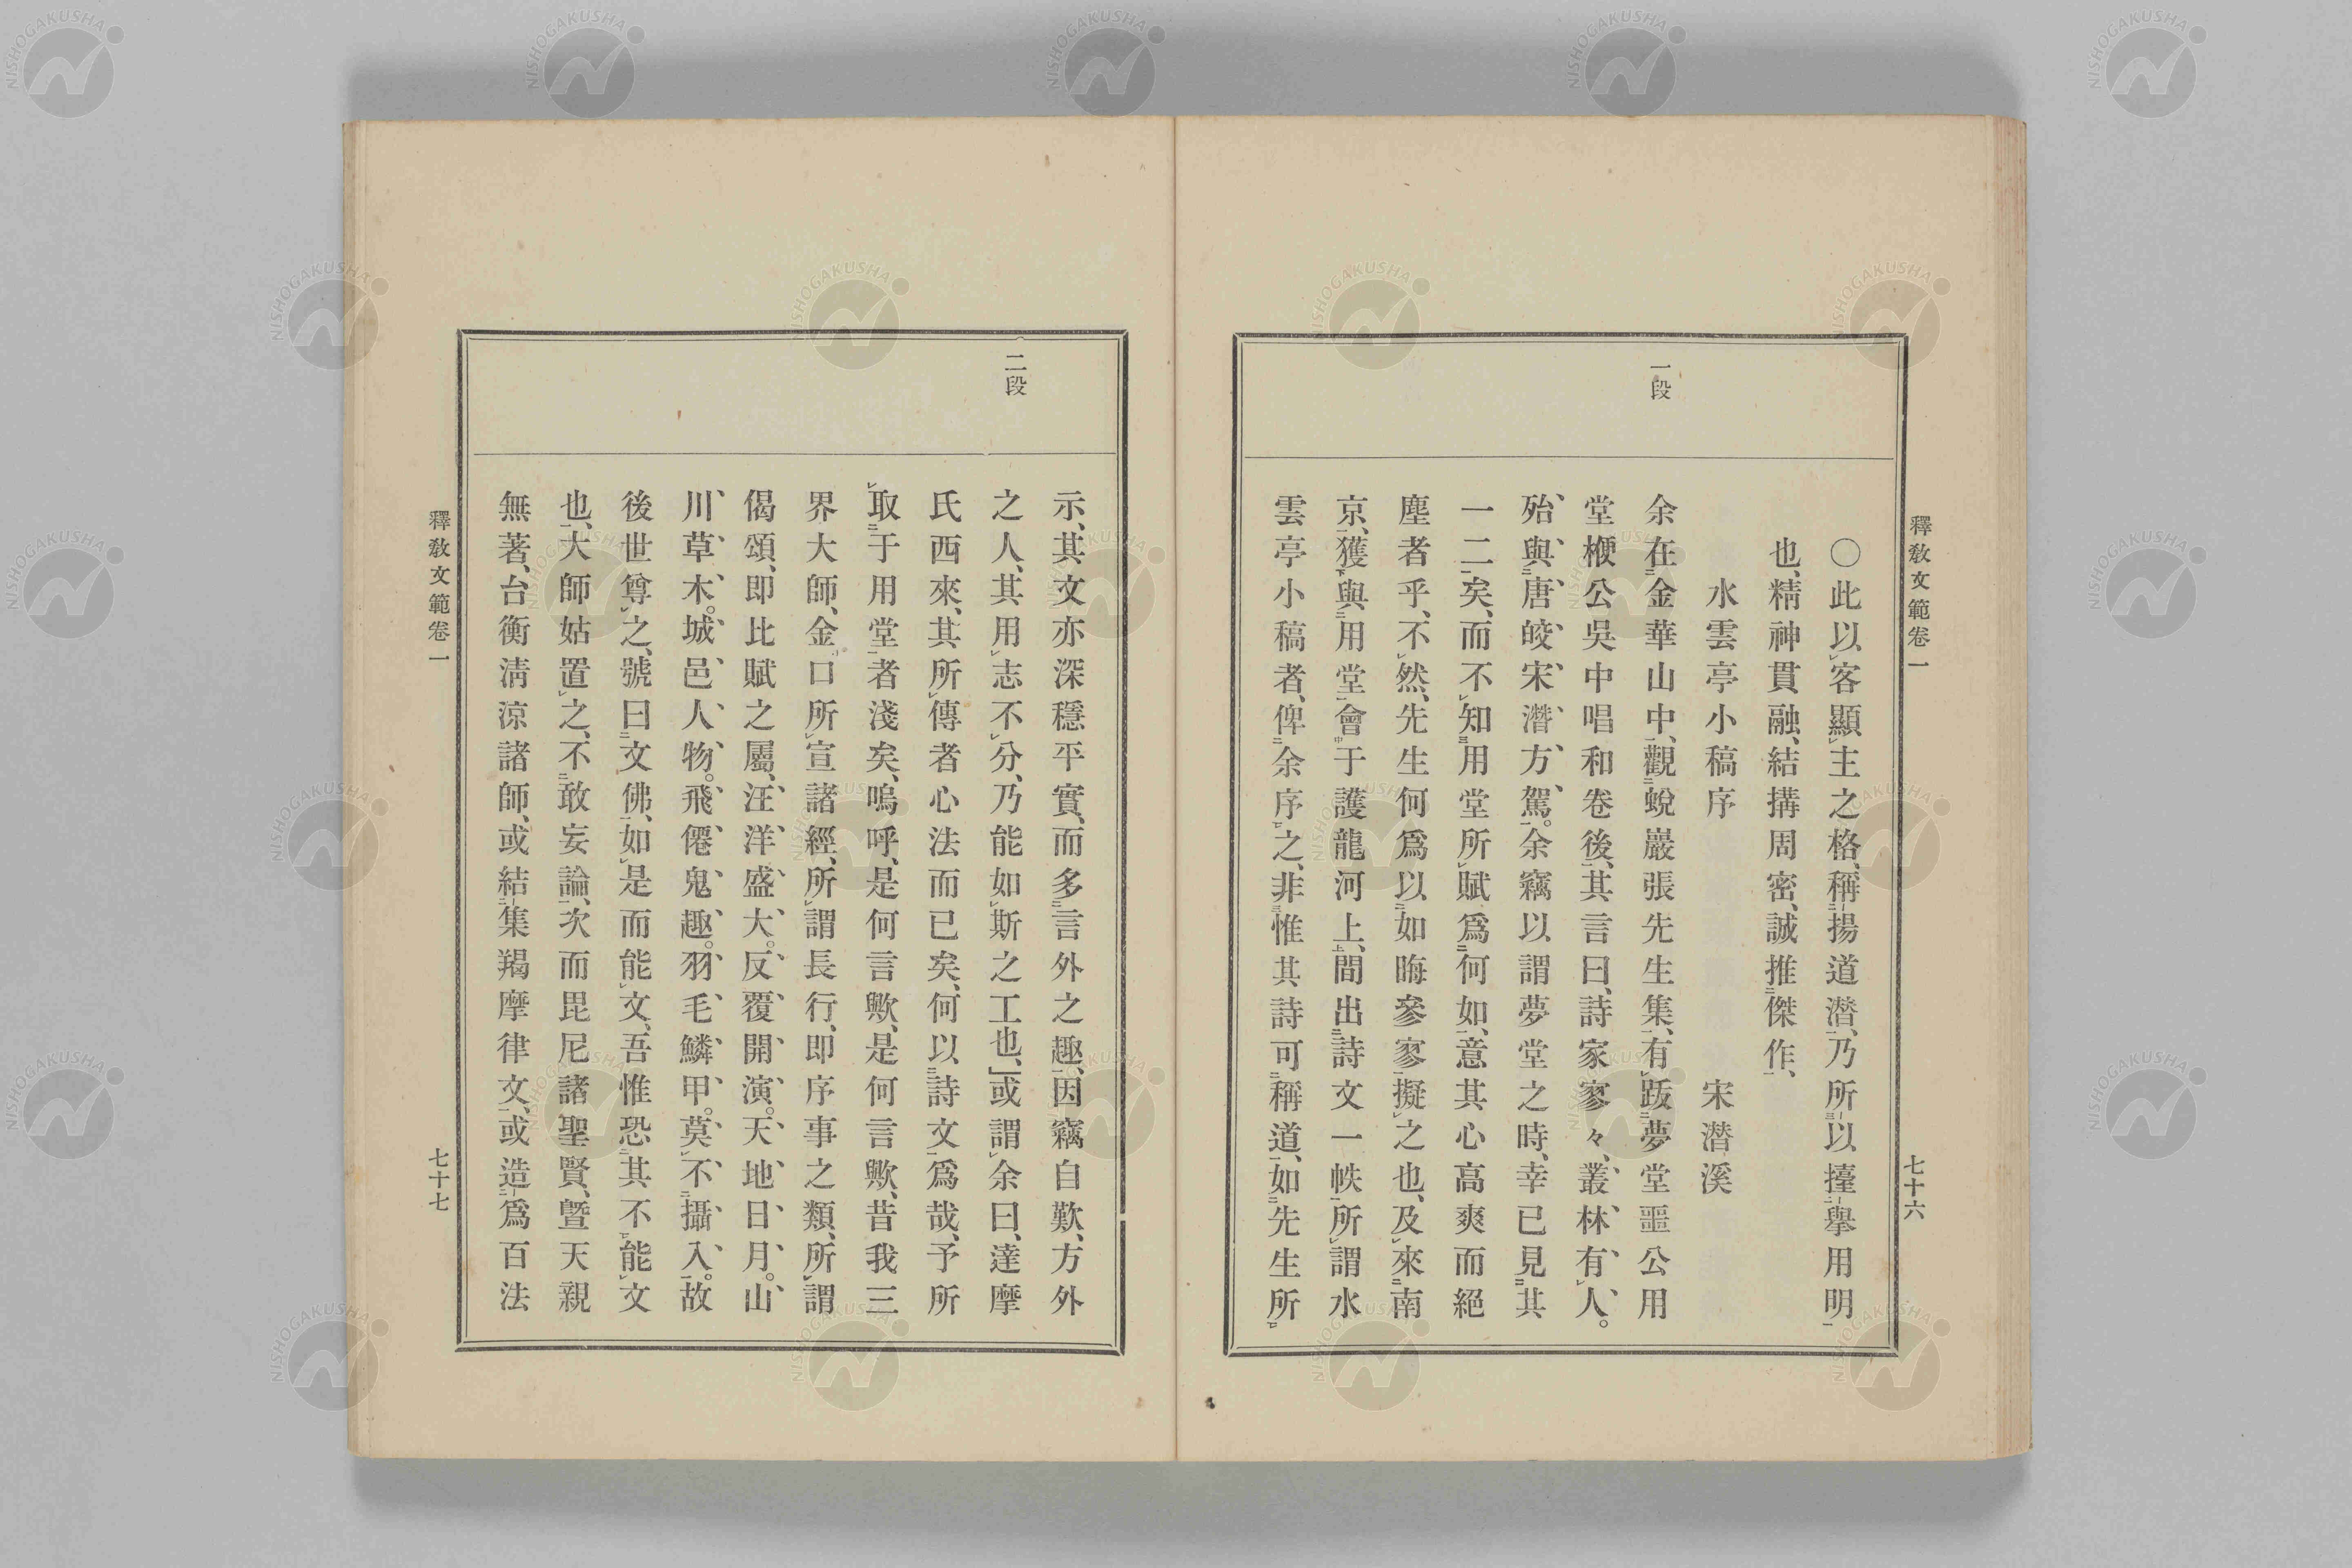 釋敎文範卷一
七十六
一段
○此以客顯主之格、稱揚道潛、乃所以擡擧用明
也、精神貫融、結搆周密、誠推傑作、
水雲亭小稿序 宋潛溪
余在金華山中、觀蛻巖張先生集、有跋夢堂噩公用
堂楩公吳中唱和卷後、其言曰、詩家寥々、叢林有人。
殆與唐皎宋潛方駕。余竊以謂夢堂之時、幸已見其
一二矣、而不知用堂所賦爲何如、意其心高爽而絕
塵者乎、不然、先生何爲以如晦參寥擬之也、及來南
京、獲與用堂會于護龍河上、間出詩文一帙、所謂水
雲亭小稿者、俾余序之、非惟其詩可稱道、如先生所
二段
示、其文亦深穩平實、而多言外之趣、因竊自歎、方外
之人、其用志不分、乃能如斯之工也、」或謂余曰、達摩
氏西來、其所傳者心法而已矣、何以詩文爲哉、予所
取于用堂者淺矣、嗚呼、是何言歟、是何言歟、昔我三
界大師、金口所宣諸經、所謂長行、即序事之類、所謂
偈頌、即比賦之屬、汪洋盛大。反覆開演。天地日月。山
川草木。城邑人物。飛僊鬼趣。羽毛鱗甲。莫不攝入。故
後世尊之、號曰文佛、如是而能文、吾惟恐其不能文
也、大師姑置之、不敢妄論、次而毘尼諸聖賢、曁天親
無著、台衡淸涼諸師、或結集羯摩律文、或造爲百法
釋敎文範卷一
七十七
NISHOGAKUSHA